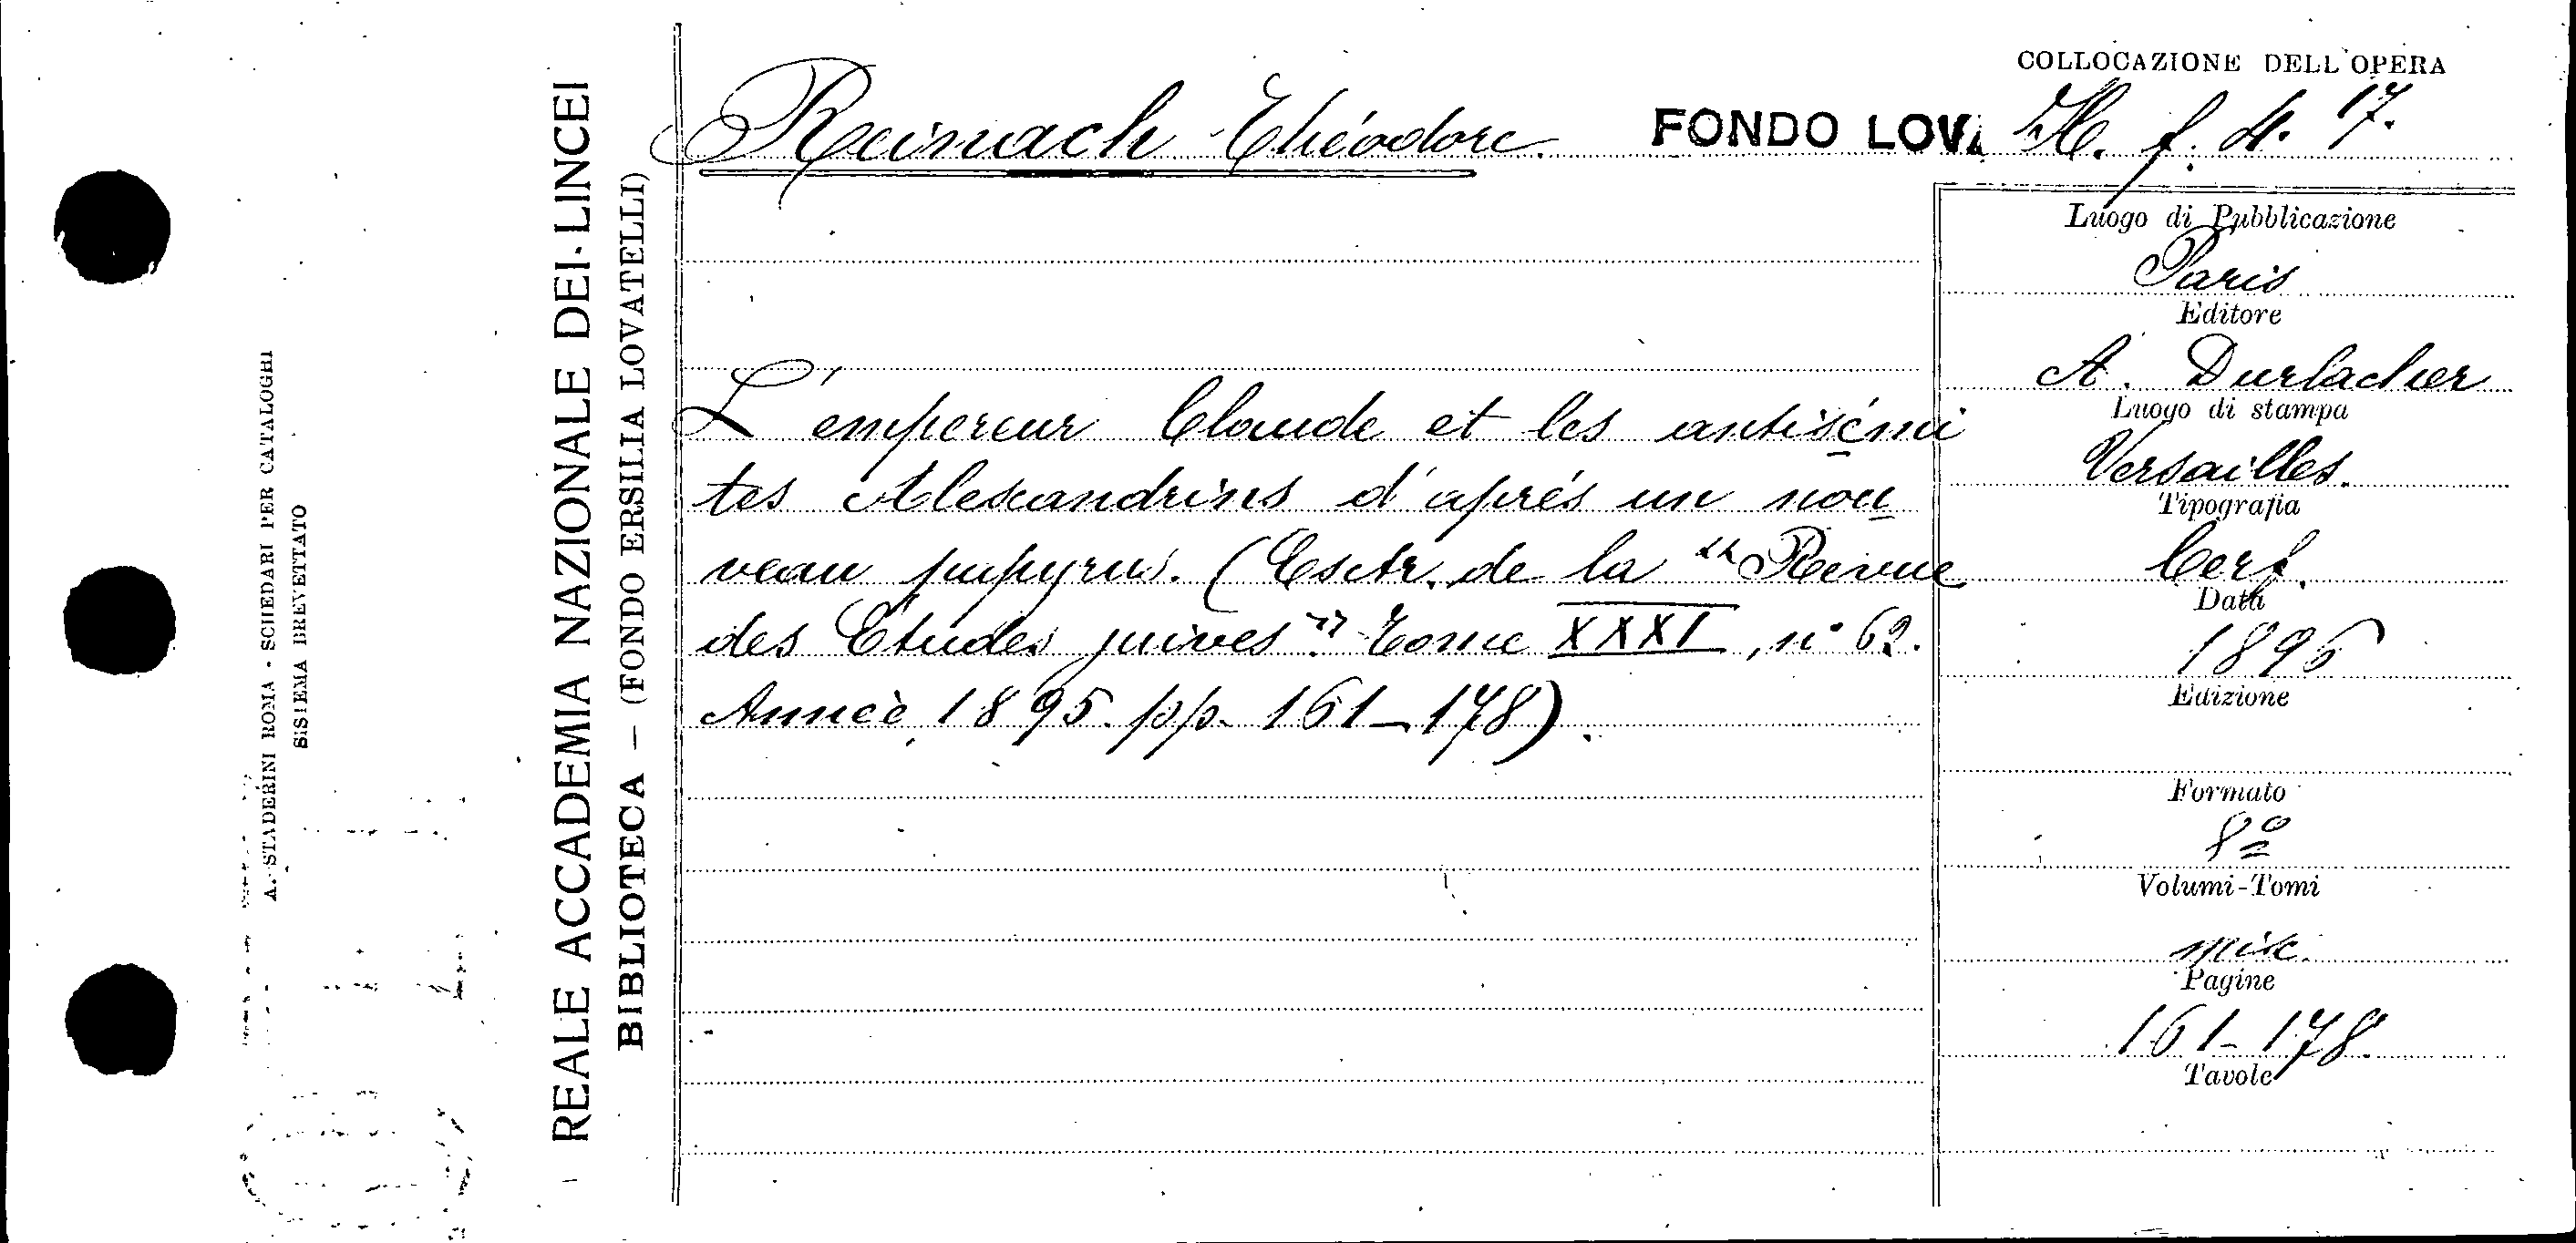 COLLOCAZIONE DELL'OPERA
Reinach Théodore.
FONDO LOV. H. f. 4. 17.
L'empereur Claude et les antisémi
tes Alexandrins d'aprés un nou
veau papyrus. (Extr. de la "Revue
des Études juives" Tome XXXI, n° 62.
Anneè 1895. pp. 161-178).
Luogo di Pubblicazione
Paris
Editore
A. Durlacher
Luogo di stampa
Versailles.
Tipografia
Cerf.
Data
1896
Edizione
Formato
8º
Volumi-Tomi
misc.
Pagine
161-178.
Tavole
REALE ACCADEMIA NAZIONALE DEI LINCEI
BIBLIOTECA — (FONDO ERSILIA LOVATELLI)
A. STADERINI ROMA - SCHEDARI PER CATALOGHI
SISTEMA BREVETTATO